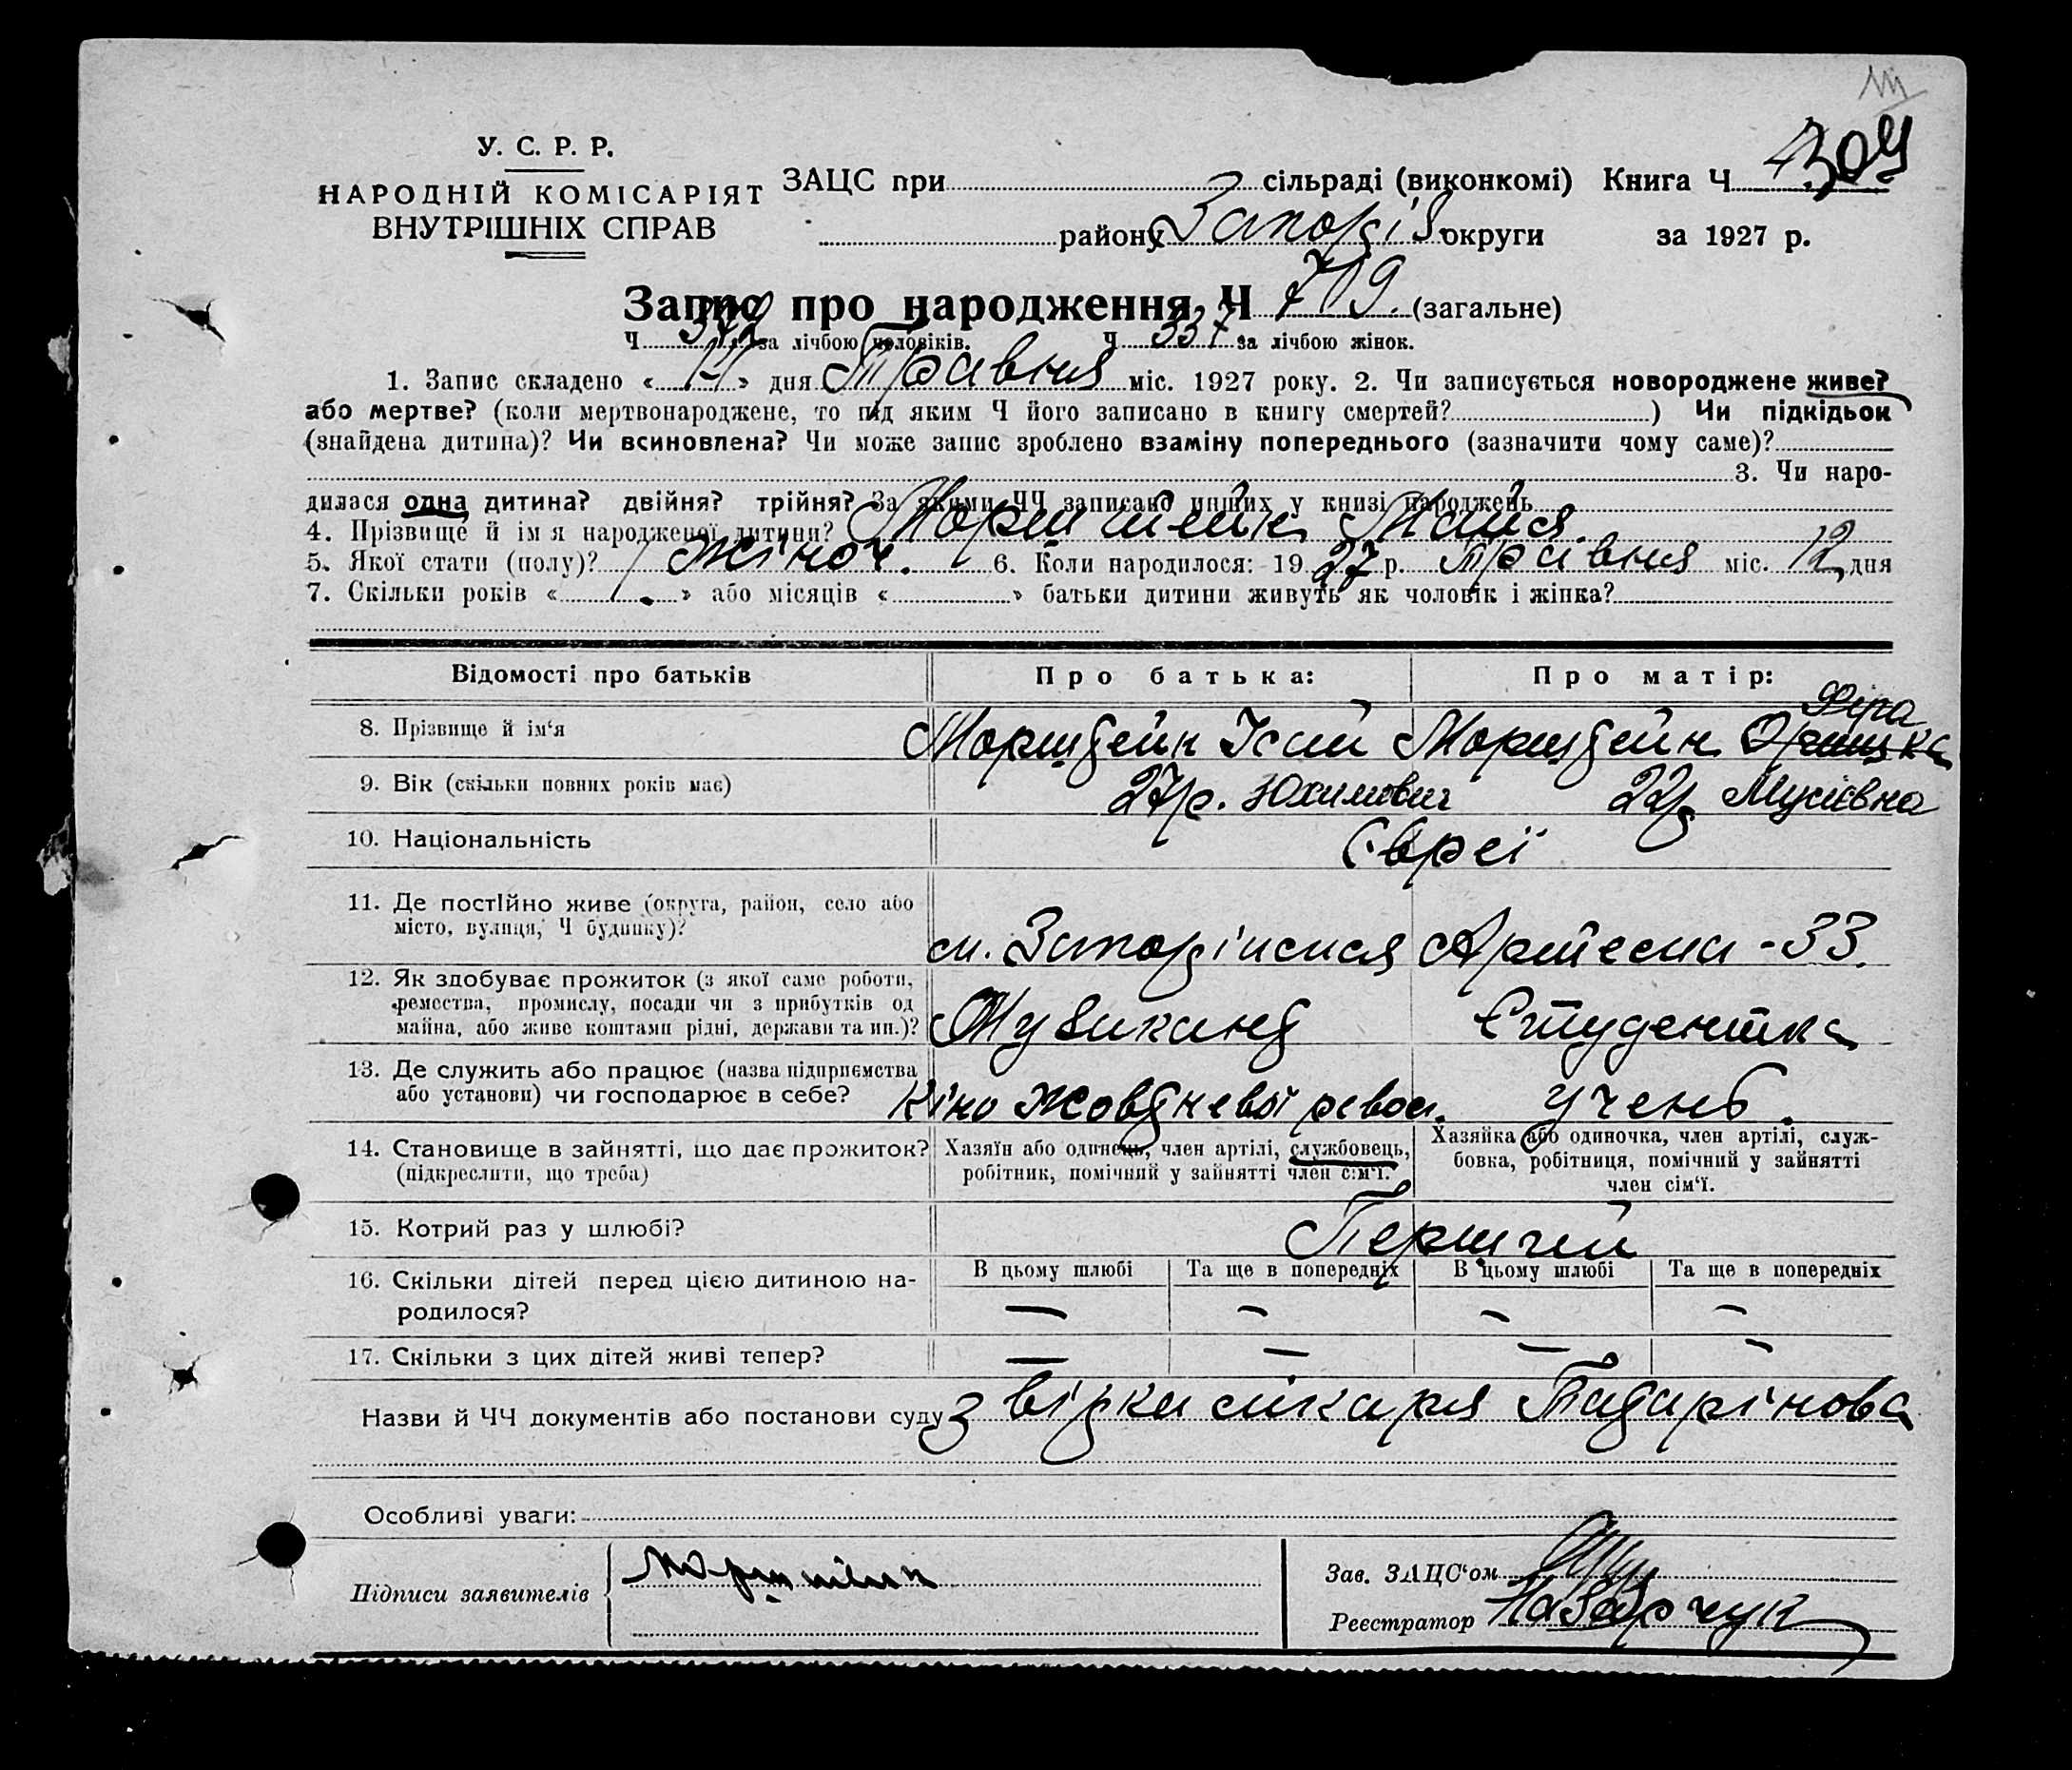 У. С. Р. Р.
НАРОДНІЙ КОМІСАРІЯТ
ВНУТРІШНІХ СПРАВ
ЗАЦС при сільраді (виконкомі) Книга Ч
району Запоріз округи за 1927 р.
Запис про народження Ч 719. (загальне)
Ч за лічбою чоловіків. Ч 337 за лічбою жінок.
1. Запис складено « 14 » дня Травня міс. 1927 року. 2. Чи записується новороджене живе?
або мертве? (коли мертвонароджене, то під яким Ч його записано в книгу смертей? ) Чи підкідьок
(знайдена дитина)? Чи всиновлена? Чи може запис зроблено взаміну попереднього (зазначити чому саме)?
3. Чи наро-
дилася одна дитина? двійня? трійня? За якими ЧЧ записано инших у книзі народжень
4. Прізвище й ім я народженої дитини? Морштейн Майя.
5. Якої стати (полу)? жіноч. 6. Коли народилося: 19 27 р. Травня міс. 12 дня
7. Скільки років « 1. » або місяців « » батьки дитини живуть як чоловік і жінка?
Відомості про батьків Про батька: Про матір:
Фіра
8. Прізвище й ім‘я Морштейн Ісай Морштейн
9. Вік (скільки повних років має) 27 р. Юхимович 22 р Мусієвна
10. Національність Євреї
11. Де постійно живе (округа, район, село або
місто, вулиця, Ч будинку)? м. Запоріжжя Артема - 33.
12. Як здобуває прожиток (з якої саме роботи,
ремества, промислу, посади чи з прибутків од
майна, або живе коштами рідні, держави та ин.)? Музикант Студентка
13. Де служить або працює (назва підприємства
або установи) чи господарює в себе? Кіно Жовтневої револ. учень.
14. Становище в зайнятті, що дає прожиток?
(підкреслити, що треба)
Хазяїн або одинець, член артілі, службовець,
робітник, помічний у зайнятті член сім‘ї.
Хазяйка або одиночка, член артілі, служ-
бовка, робітниця, помічний у зайнятті
член сім‘ї.
15. Котрий раз у шлюбі? Перший
16. Скільки дітей перед цією дитиною на-
родилося?
В цьому шлюбі Та ще в попередніх В цьому шлюбі Та ще в попередніх
— — — —
17. Скільки з цих дітей живі тепер? — — — —
Назви й ЧЧ документів або постанови суду Звірки лікаря Татарінова
Особливі уваги:
Підписи заявителів Морштейн
Зав. ЗАЦС‘ом
Реєстратор Назарчук